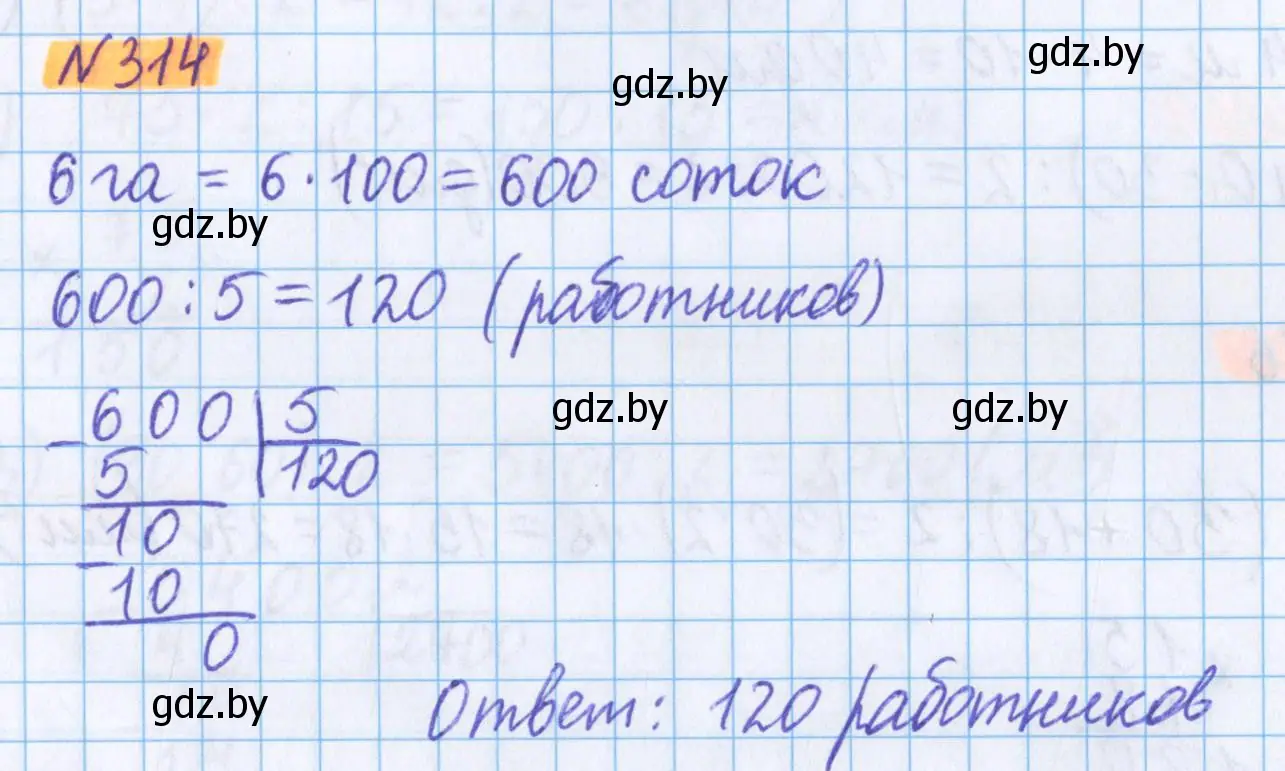 N314
gdz.by
gdz.by
6 га = 6 · 100 = 600 соток
gdz.by
600 : 5 = 120 (работников)
- 600 | 5
5 | 120
gdz.by
gdz.by
- 10
10
0
gdz.by
Ответ: 120 работников